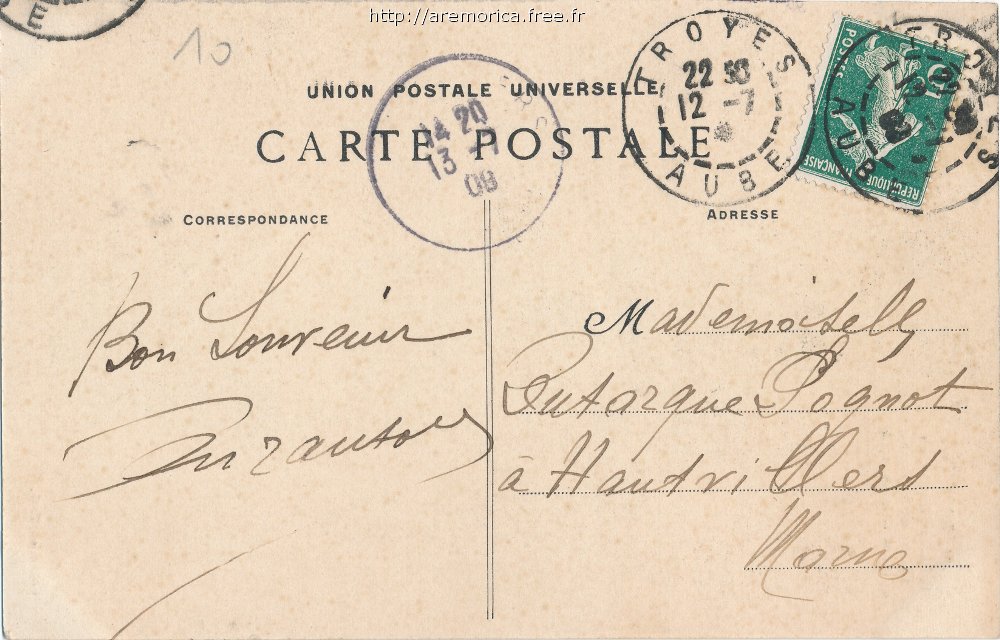 http://aremorica.free.fr
10
UNION POSTALE UNIVERSELLE
CARTE POSTALE
14 20
13 -7
08
TROYES
22 50
12 -7
AUBE
POSTES
RÉPUBLIQUE FRANÇAISE
TROYES
AUBE
CORRESPONDANCE
ADRESSE
Bon Souvenir
Mademoiselle
Dutarque Pognot
à Hautvillers
Marne